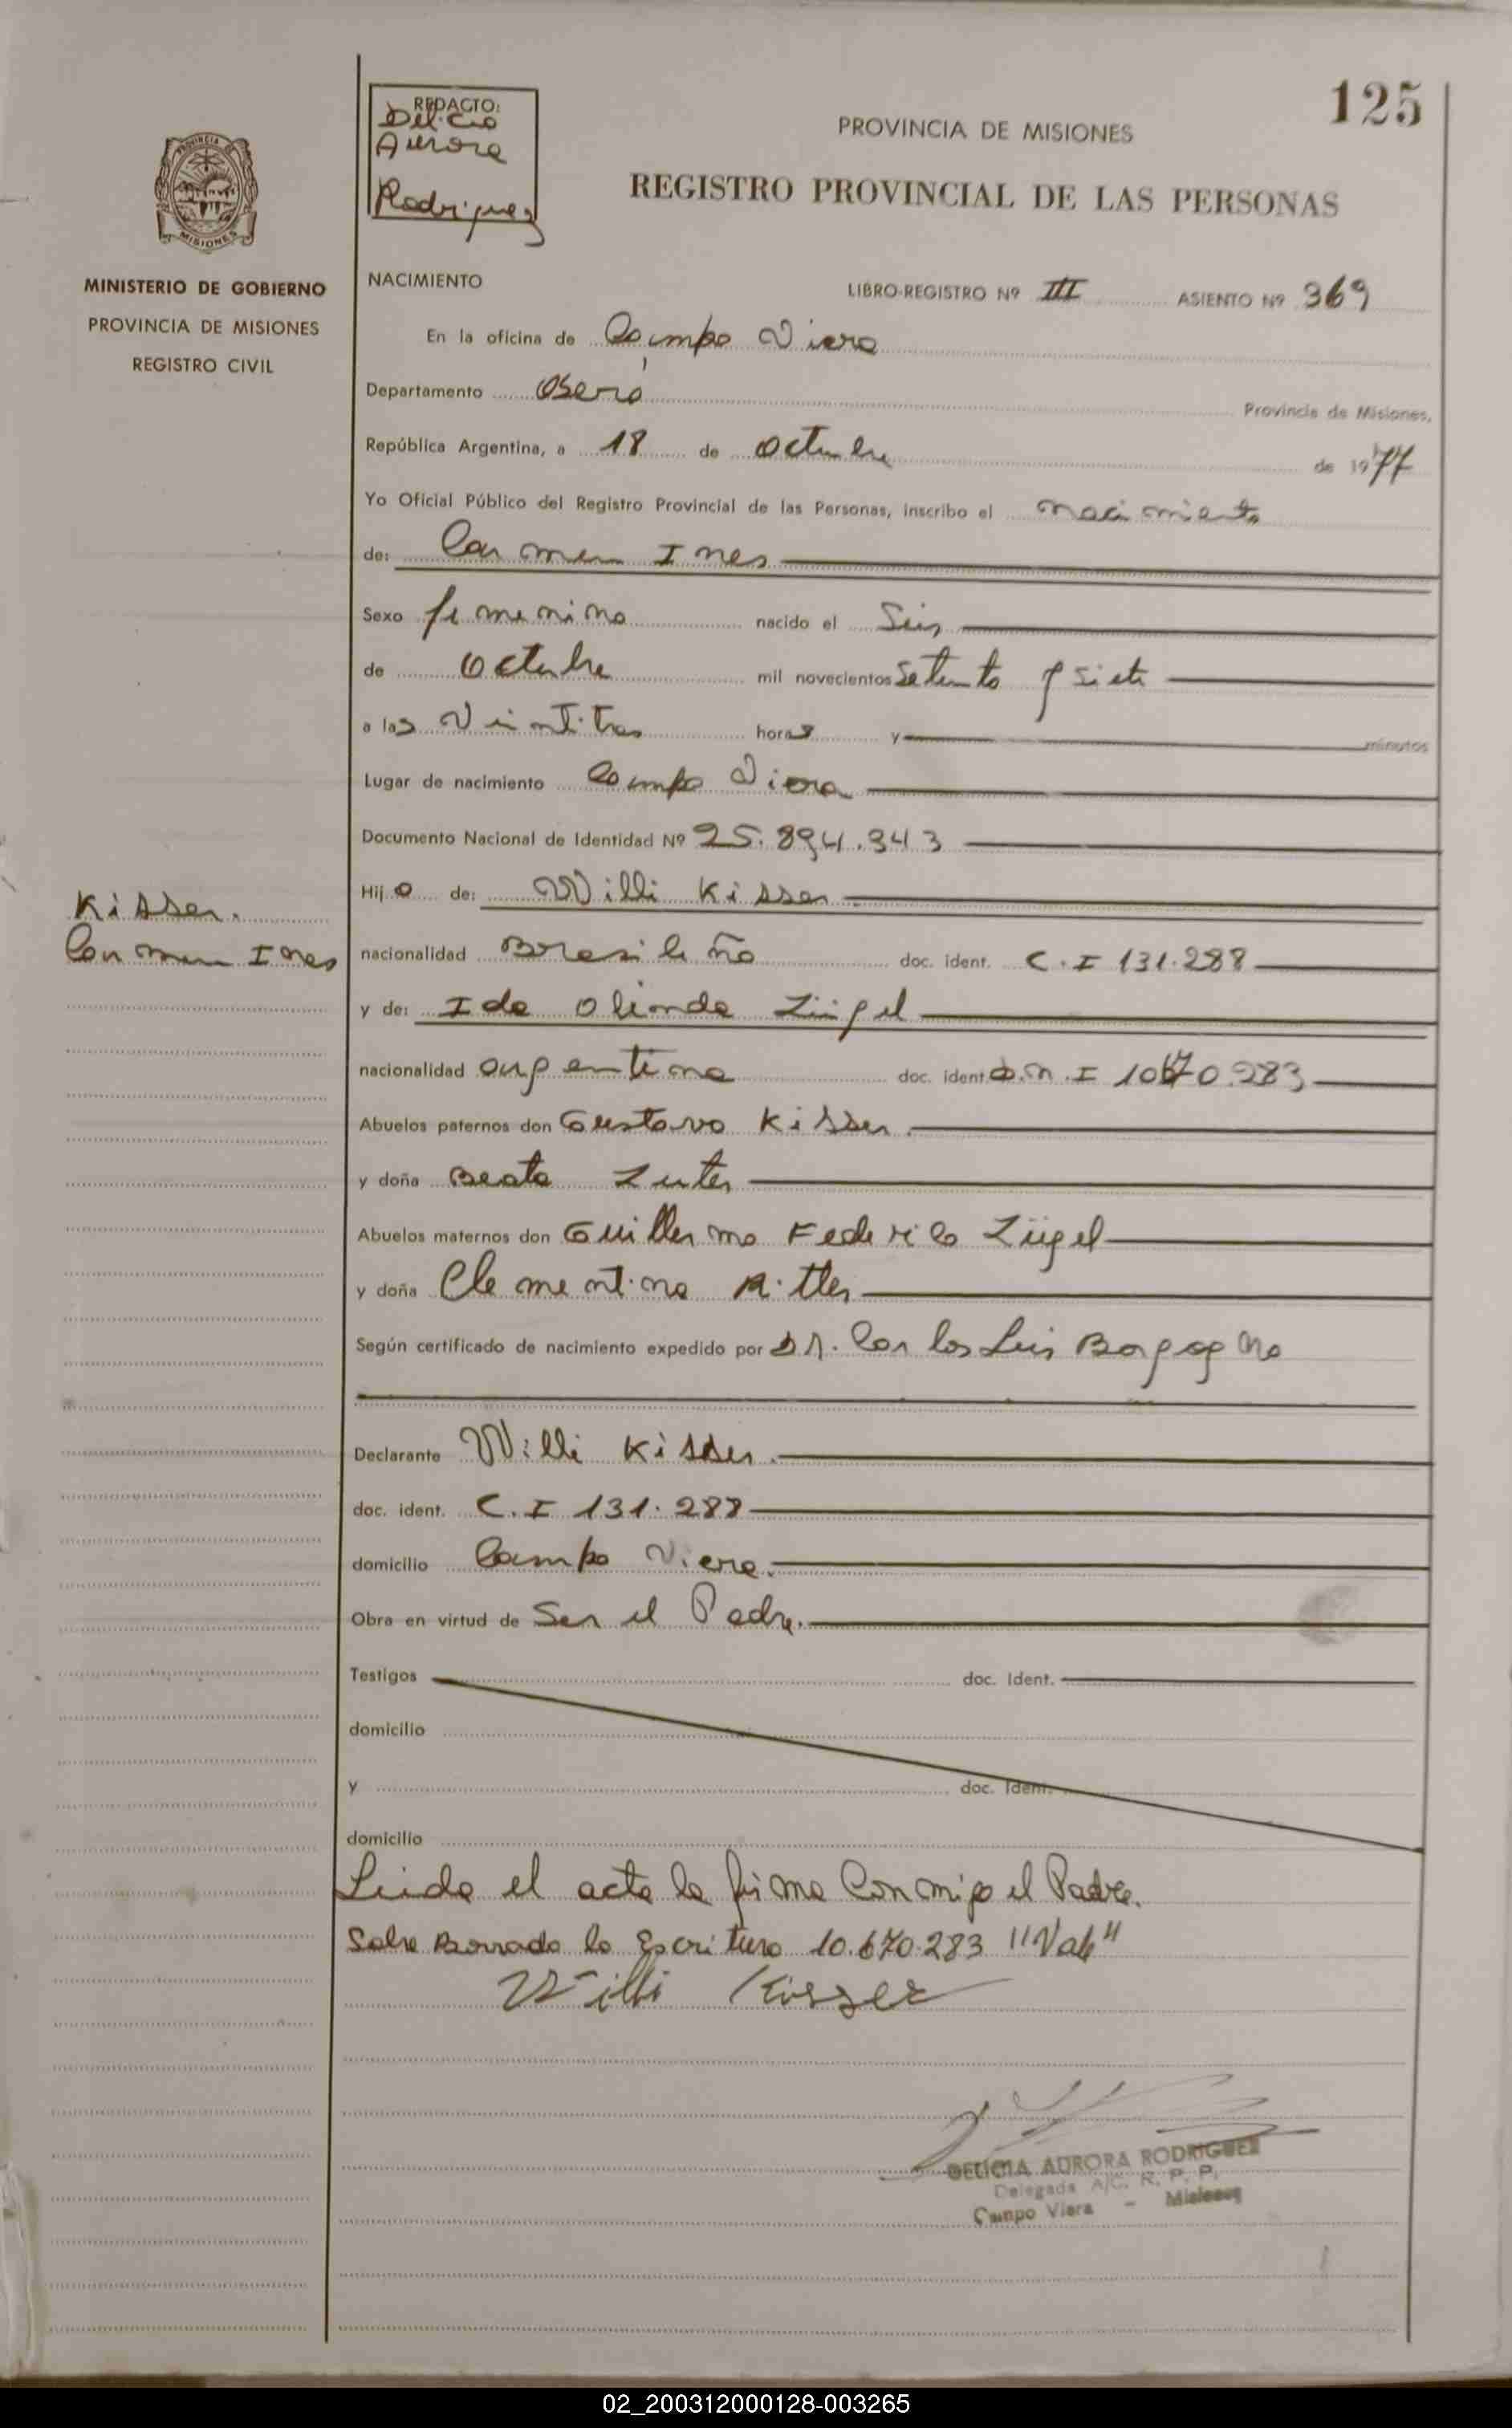 125
REDACTO:
Delicia
Aurora
Rodriguez
PROVINCIA DE MISIONES
REGISTRO PROVINCIAL DE LAS PERSONAS
PROVINCIA DE
MISIONES
MINISTERIO DE GOBIERNO
PROVINCIA DE MISIONES
REGISTRO CIVIL
NACIMIENTO LIBRO-REGISTRO Nº III ASIENTO Nº 369
En la oficina de Campo Viera
Departamento Oberá Provincia de Misiones,
República Argentina, a 18 de octubre de 1977
Yo Oficial Público del Registro Provincial de las Personas, inscribo el nacimiento
de: Carmen Ines
Sexo femenino nacido el Seis
de octubre mil novecientos setenta y siete
a las Veintitres horas y minutos
Lugar de nacimiento Campo Viera
Documento Nacional de Identidad Nº 25.894.343
Hija de: Willi Kisser
Kisser.
Carmen Ines
nacionalidad Brasileño doc. ident. C.I 131.288
y de: Ida Olinda Zügel
nacionalidad argentina doc. ident. D.N.I 10670.283
Abuelos paternos don Gustavo Kisser.
y doña Beata Zuter
Abuelos maternos don Guillermo Federico Zügel
y doña Clementina Ritter
Según certificado de nacimiento expedido por DR. Carlos Luis Borgogno
Declarante Willi Kisser.
doc. ident. C.I 131.288
domicilio Campo Viera.
Obra en virtud de Ser el Padre.
Testigos doc. Ident.
domicilio
y doc. Ident.
domicilio
Leida el acta la firma Conmigo el Padre.
Sobre Borrado lo Escrituro 10.670.283 "Vale"
Willi Kisser
DELICIA AURORA RODRIGUEZ
Delegada A/C. R. P. P.
Campo Viera - Misiones
02_200312000128-003265